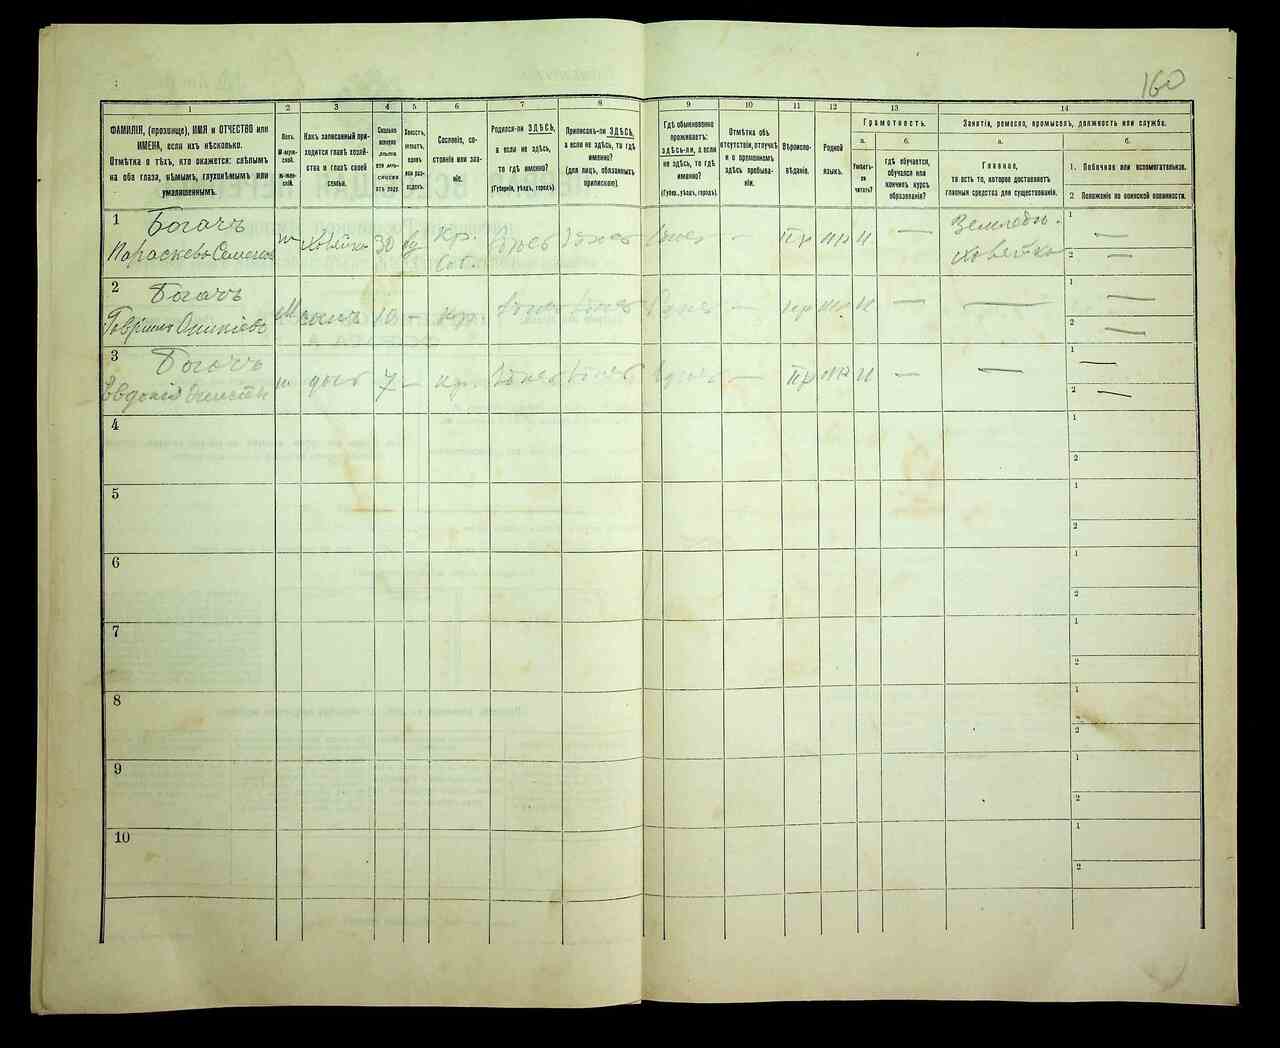 160
1
2
3
4
5
6
7
8
9
10
11
12
13
14
ФАМИЛІЯ, (прозвище), ИМЯ и ОТЧЕСТВО или
ИМЕНА, если ихъ нѣсколько.
Отмѣтка о тѣхъ, кто окажется: слѣпымъ
на оба глаза, нѣмымъ, глухонѣмымъ или
умалишеннымъ.
Полъ.
М-муж-
ской.
Ж-жен-
скій.
Какъ записанный при-
ходится главѣ хозяй-
ства и главѣ своей
семьи.
Сколько
Холостъ,
женатъ,
вдовъ
или раз-
веденъ.
Сословіе, со-
стояніе или зва-
ніе.
Родился-ли ЗДѢСЬ,
а если не здѣсь,
то гдѣ именно?
(Губернія, уѣздъ, городъ).
Приписанъ-ли ЗДѢСЬ,
а если не здѣсь, то гдѣ
именно?
(для лицъ, обязанныхъ
припискою).
Гдѣ обыкновенно
проживаетъ:
ЗДѢСЬ-ЛИ, а если
не здѣсь, то гдѣ
именно?
(Губ., уѣздъ, городъ).
Отмѣтка объ
отсутствіи, отлучкѣ
и о временномъ
здѣсь пребыва-
ніи.
Вѣроиспо-
вѣданіе.
Родной
языкъ.
Грамотность.
а.
б.
Умѣетъ-
ли
читать?
гдѣ обучается,
обучался или
кончилъ курсъ
образованія?
Занятіе, ремесло, промыселъ, должность или служба.
а.
б.
Главное,
то есть то, которое доставляетъ
главныя средства для существованія.
1. Побочное или вспомогательное.
2 Положеніе по воинской повинности.
1
Богачъ
Параскева
ж
Хозяйка
30
кр.
Здѣсь Здѣсь Здѣсь
—
пр
н
—
Земледѣл.
Хозяйка
1 —
2 —
2
Богачъ
М
сынъ
10
—
кр.
Здѣсь Здѣсь Здѣсь
—
пр
н
—
—
1 —
2 —
3
Богачъ
Евдокія
ж
дочь
7
—
кр.
Здѣсь Здѣсь Здѣсь
—
пр
н
—
—
1 —
2 —
4
1
2
5
1
2
6
1
2
7
1
2
8
1
2
9
1
2
10
1
2